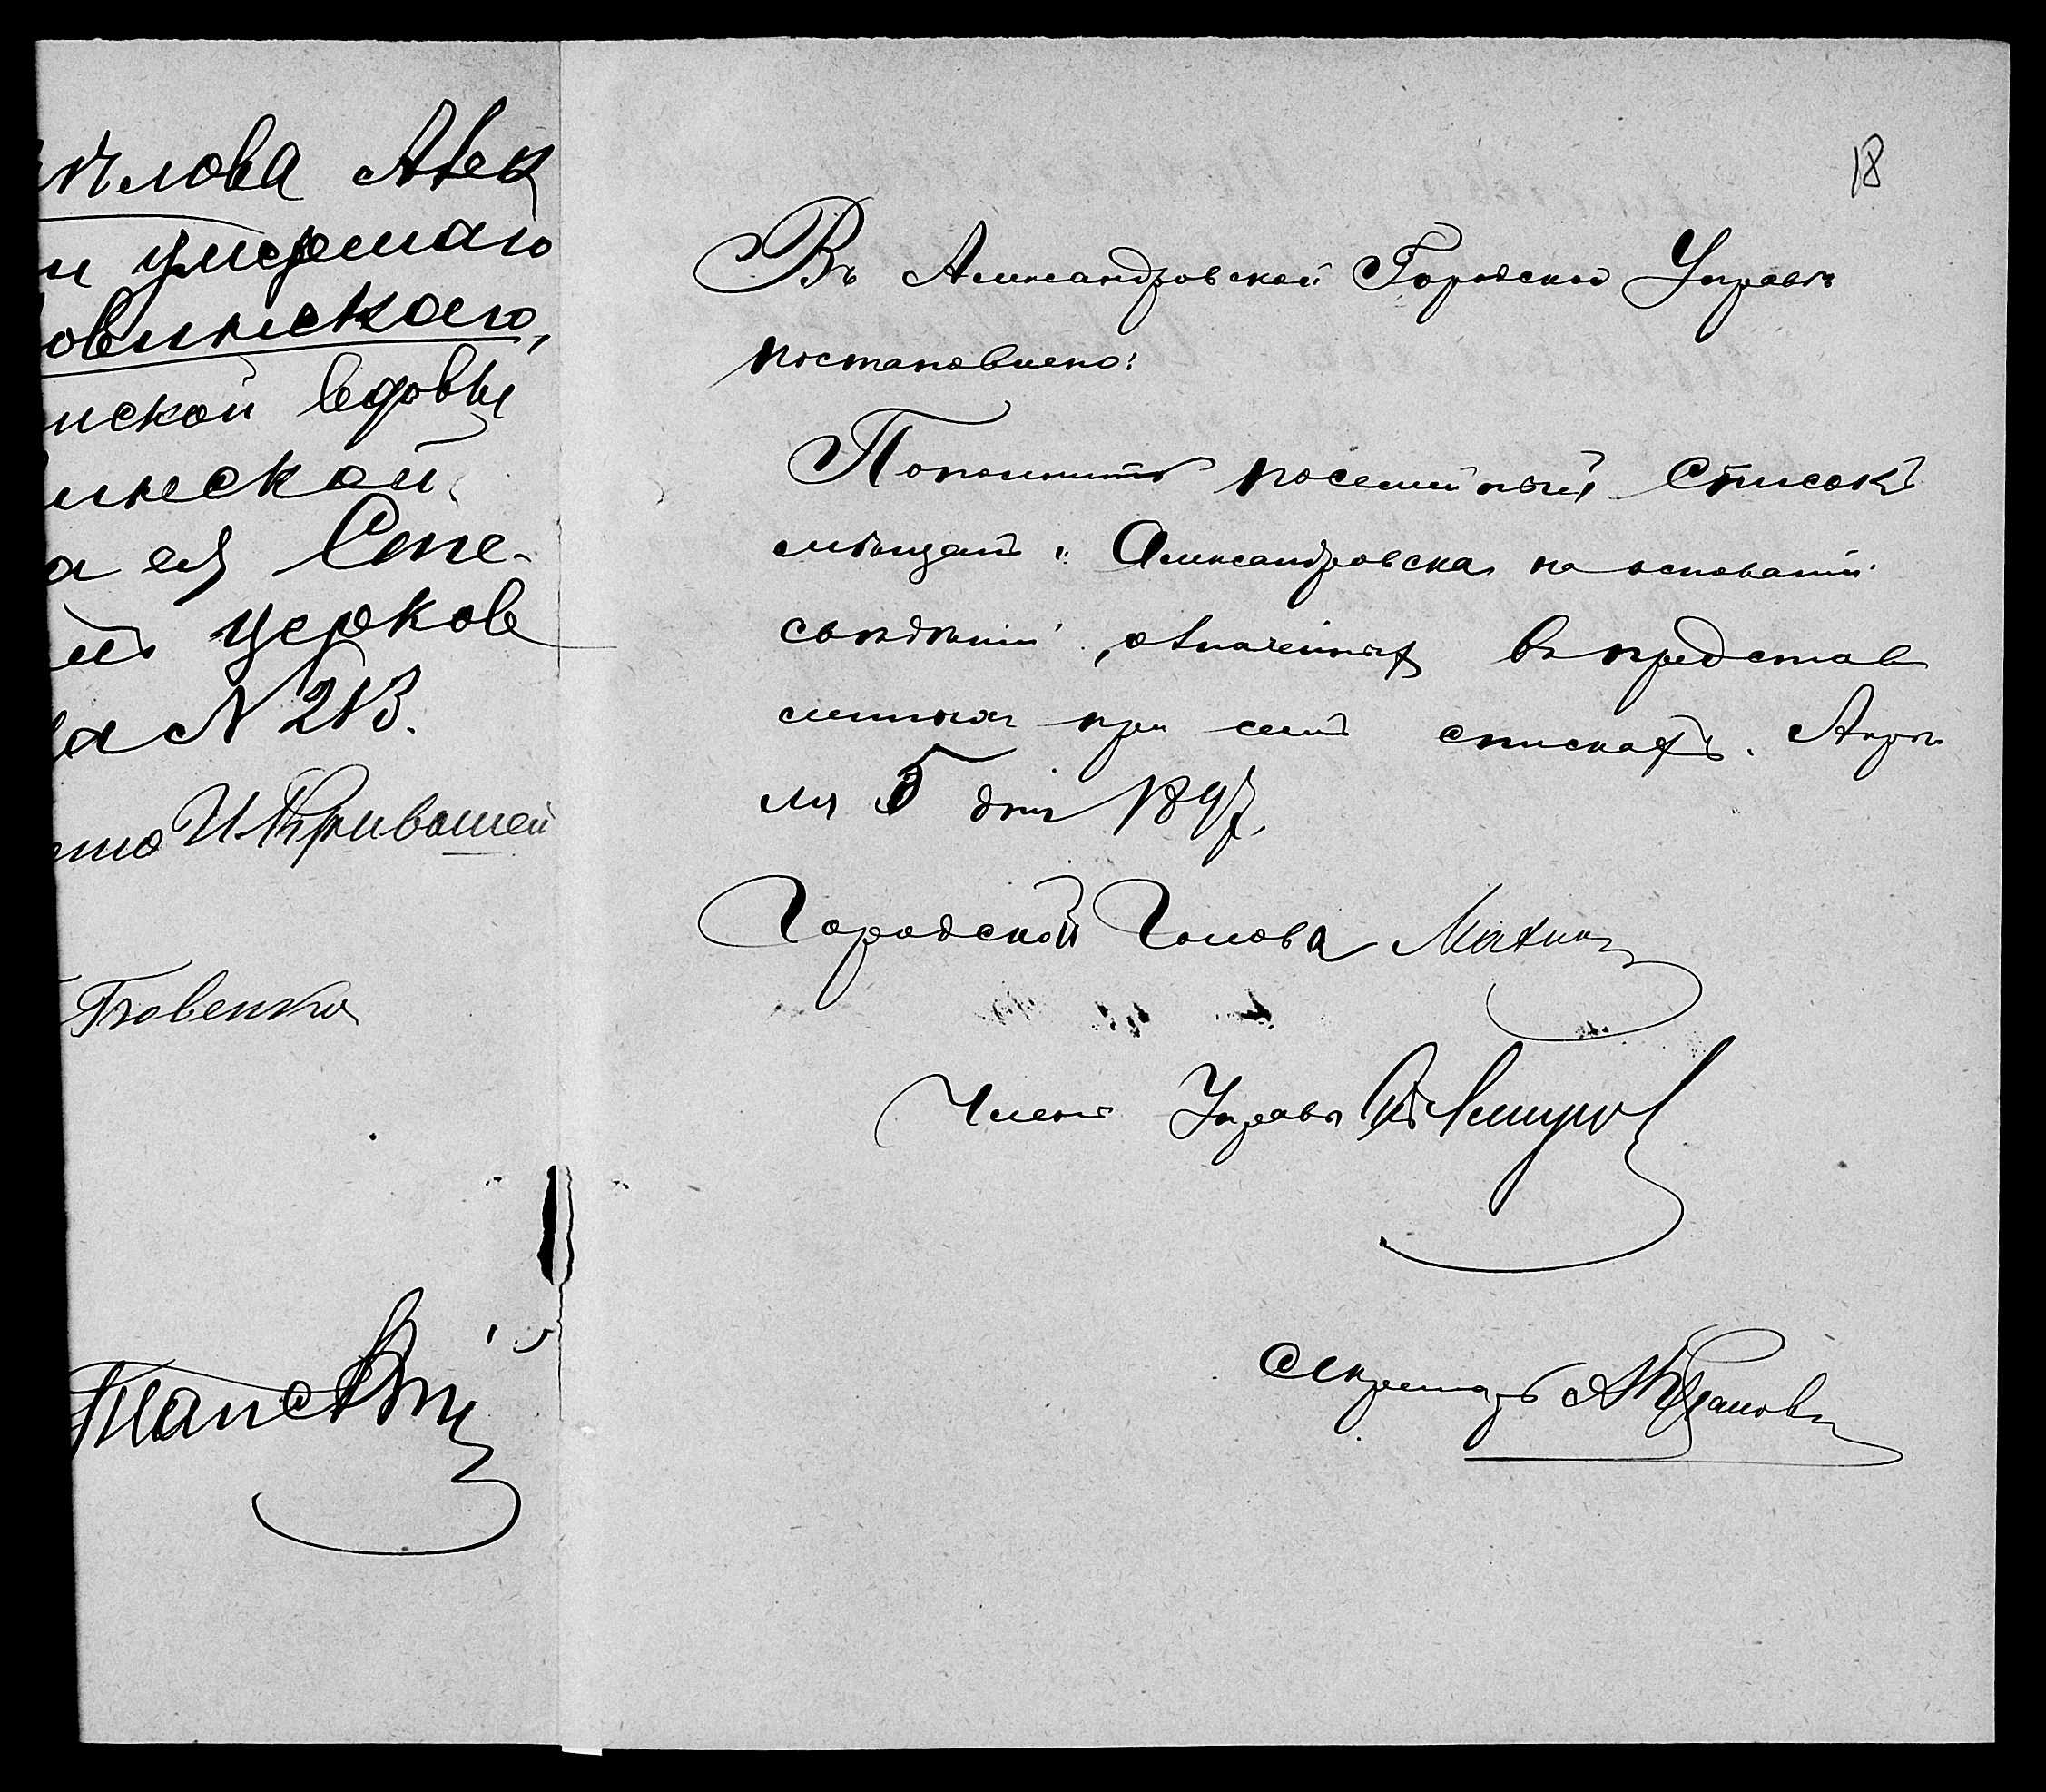 илова Алек
и умершаго
овинскаго,
нской вдовы
инской
а ея Сте-
ий церков
да N 213.
18
Въ Александровской Городской Управѣ
постановлено:
Пополнить посемейный списокъ
мѣщанъ г. Александровска на основаніи
свѣдѣній, означенныхъ въ представ
ленныхъ при семъ спискахъ. Апрѣ
ля 5 дня 1897.
Городской Голова Махинъ
Членъ Управы
Секретарь